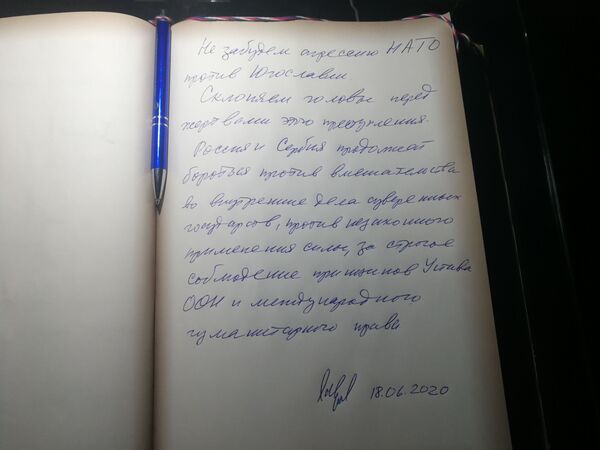 Не забудем агрессию НАТО
против Югославии.
Склоняем головы перед
жертвами этого преступления.
Россия и Сербия продолжат
бороться против вмешательства
во внутренние дела суверенных
государств, против незаконного
применения силы, за строгое
соблюдение принципов Устава
ООН и международного
гуманитарного права
18.06.2020